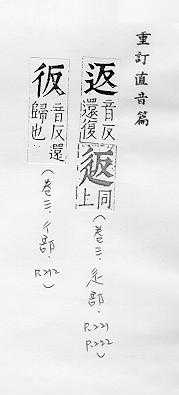 重訂直音篇
返 音反 還復 𨒫 同上 (卷三·辵部, P.221 P.222)
彶 音反還 歸也 (卷三·彳部, P.212)